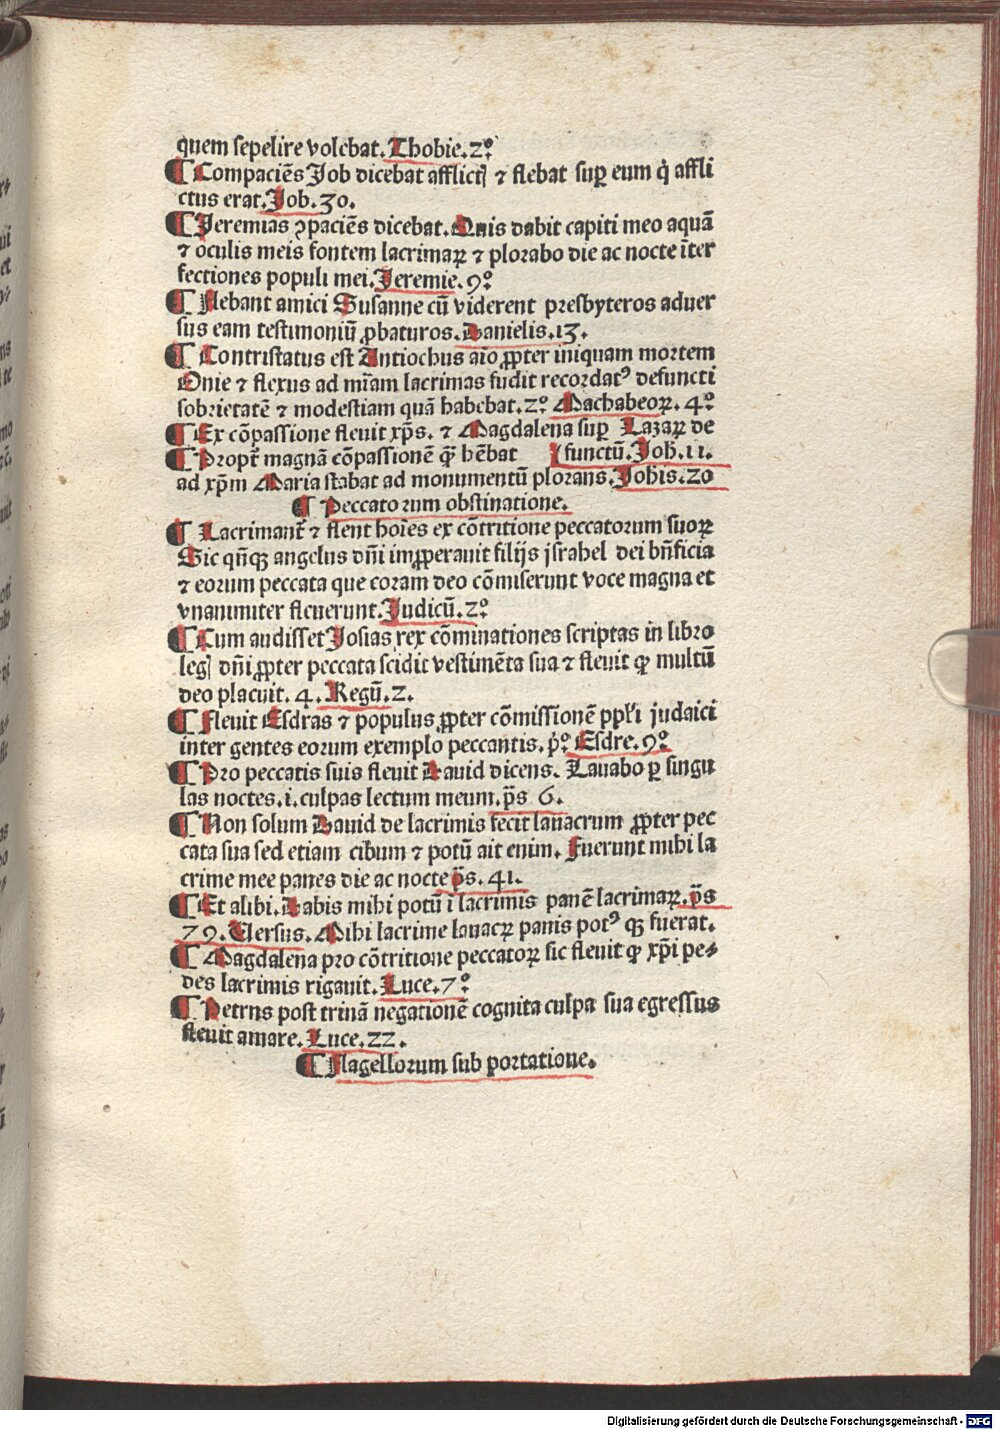 quem sepelire volebat. Thobie. 2º
¶ Compaciēs Job dicebat afflictꝭ ⁊ flebat suꝑ eum q̇ affli
ctus erat. Job. 30.
¶ Jeremias ꝯpaciēs dicebat. Quis dabit capiti meo aquā
⁊ oculis meis fontem lacrimaꝝ ⁊ plorabo die ac nocte īter
fectiones populi mei. Jeremie. 9º
¶ Flebant amici Susanne cū viderent presbyteros aduer
sus eam testimoniū ꝓbaturos. Danielis. 13.
¶ Contristatus est Antiochus aīo ꝓpter iniquam mortem
Onie ⁊ flexus ad mīam lacrimas fudit recordatꝰ defuncti
sobrietatē ⁊ modestiam quā habebat. 2º Machabeoꝝ. 4º
¶ Ex cōpassione fleuit xp̄s. ⁊ Magdalena suꝑ Lazaꝝ de
¶ Propt̄ magnā cōpassionē ꝙ hēbat ( functū. Joh̄. 11.
ad xp̄m Maria stabat ad monumentū plorans. Joh̄is. 20
¶ Peccatorum obstinatione.
¶ Lacrimant̄ ⁊ flent hoīes ex cōtritione peccatorum suoꝝ
Sic qn̄qꝫ angelus dn̄i imꝓperauit filijs jsrahel dei bn̄ficia
⁊ eorum peccata que coram deo cōmiserunt voce magna et
vnanimiter fleuerunt. Judicū. 2º
¶ Cum audisset Josias rex cōminationes scriptas in libro
legꝭ dn̄i ꝓpter peccata scidit vestimēta sua ⁊ fleuit ꝙ multū
deo placuit. 4. Regū. 2.
¶ Fleuit Esdras ⁊ populus ꝓpter cōmissionē ppl̄i judaici
inter gentes eorum exemplo peccantis. p̄º Esdre. 9º
¶ Pro peccatis suis fleuit Dauid dicens. Lauabo ꝑ singu
las noctes. i. culpas lectum meum. p̄s 6.
¶ Non solum Dauid de lacrimis fecit lauacrum ꝓpter pec
cata sua sed etiam cibum ⁊ potū ait enim. Fuerunt mihi la
crime mee panes die ac nocte p̄s. 41.
¶ Et alibi. Dabis mihi potū ī lacrimis panē lacrimaꝝ. p̄s
79. Versus. Mihi lacrime lauacꝝ panis potꝰ qꝫ fuerat.
¶ Magdalena pro cōtritione peccatoꝝ sic fleuit ꝙ xp̄i pe⸗
des lacrimis rigauit. Luce. 7º
¶ Petrus post trinā negationē cognita culpa sua egressus
fleuit amare. Luce. 22.
¶ Flagellorum sub portatione.
Digitalisierung gefördert durch die Deutsche Forschungsgemeinschaft - DFG